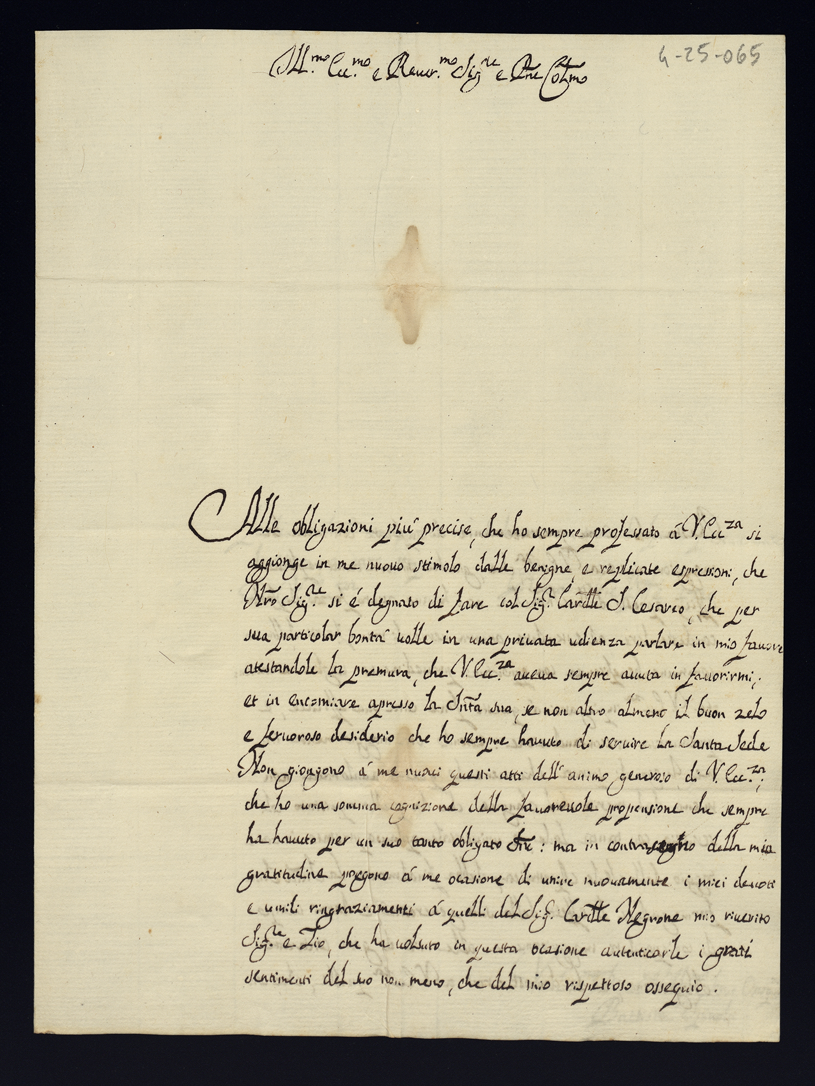 4-25-065
Ill.mo Ecc.mo e Rever.mo Sig.re e Pne Col.mo
Alle obligazioni più precise, che ho sempre professato á V. Ecc.za si
aggionge in me nuovo stimolo dalle benigne, e replicate espressioni, che
Ntro Sig.re si é degnato di fare col Sig.r Cardle S. Cesareo, che per
sua particolar bontà volle in una privata udienza parlare in mio favore
atestandole la premura, che V. Ecc.za aveva sempre avuta in favorirmi,
et in encomiare apresso la Sntà sua, se non altro almeno il buon zelo
e fervoroso desiderio che ho sempre havuto di servire la Santa Sede
Non giongono á me nuovi questi atti dell'animo generoso di V. Ecc.za;
che ho una somma cognizione della favorevole propensione che sempre
ha havuto per un suo tanto obligato Sre: ma in contrasegno della mia
gratitudine porgono á me ocasione di unire nuovamente i miei devoti
e umili ringraziamenti á quelli del Sig.r Cardle Negrone mio riverito
Sig.re e Zio, che ha volsuto in questa ocasione autenticarle i grati
sentimenti del suo non meno, che del mio rispettoso ossequio.